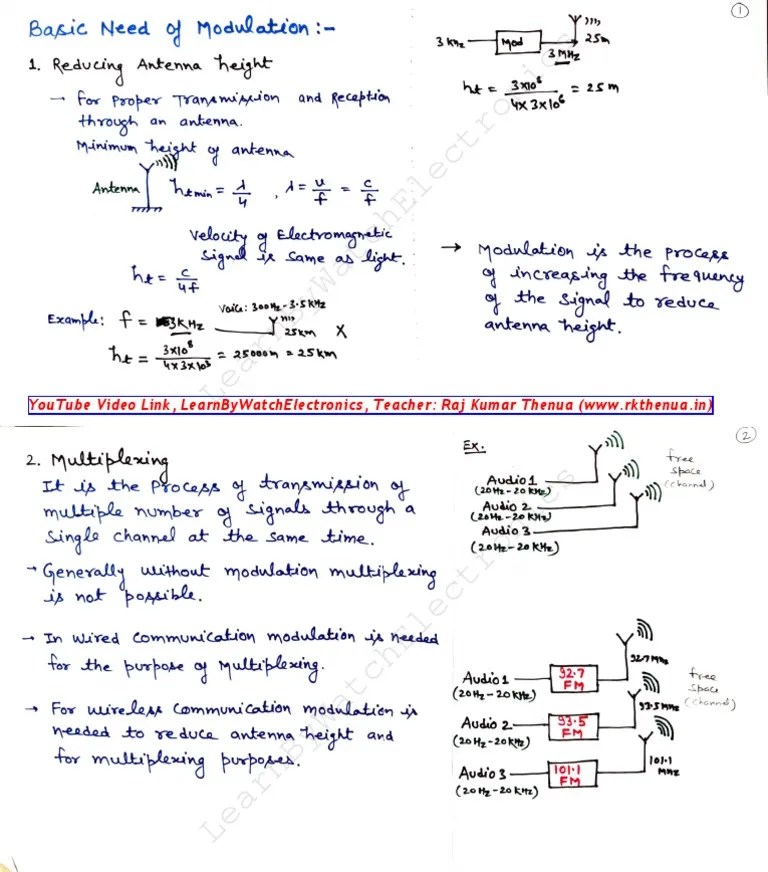 1
Basic Need of Modulation:-
1. Reducing Antenna height
→ For Proper Transmission and Reception
through an antenna.
Minimum height of antenna
Antenna
htmin = λ/4 , λ = υ/f = c/f
Velocity of Electromagnetic
signal is same as light.
ht = c/4f
Example: f = 3KHz
Voice: 300Hz-3.5KHz
25km X
ht = 3×10⁸/4×3×10³ = 25000m = 25km
3 KHz
Mod
3 MHz
25m
ht = 3×10⁸/4×3×10⁶ = 25m
→ Modulation is the process
of increasing the frequency
of the signal to reduce
antenna height.
YouTube Video Link, LearnByWatchElectronics, Teacher: Raj Kumar Thenua (www.rkthenua.in)
2
2. Multiplexing
It is the Process of transmission of
multiple number of signals through a
single channel at the same time.
→ Generally without modulation multiplexing
is not possible.
→ In wired communication modulation is needed
for the purpose of Multiplexing.
→ For wireless communication modulation is
needed to reduce antenna height and
for multiplexing purposes.
Ex.
Audio 1
(20Hz-20KHz)
Audio 2
(20Hz-20KHz)
Audio 3
(20Hz-20KHz)
free
space
(channel)
Audio 1
(20Hz-20KHz)
92.7
FM
92.7 MHz
Audio 2
(20Hz-20KHz)
93.5
FM
93.5 MHz
Audio 3
(20Hz-20KHz)
101.1
FM
101.1
MHz
free
space
(channel)
LearnByWatchElectronics
LearnByWatchElectronics